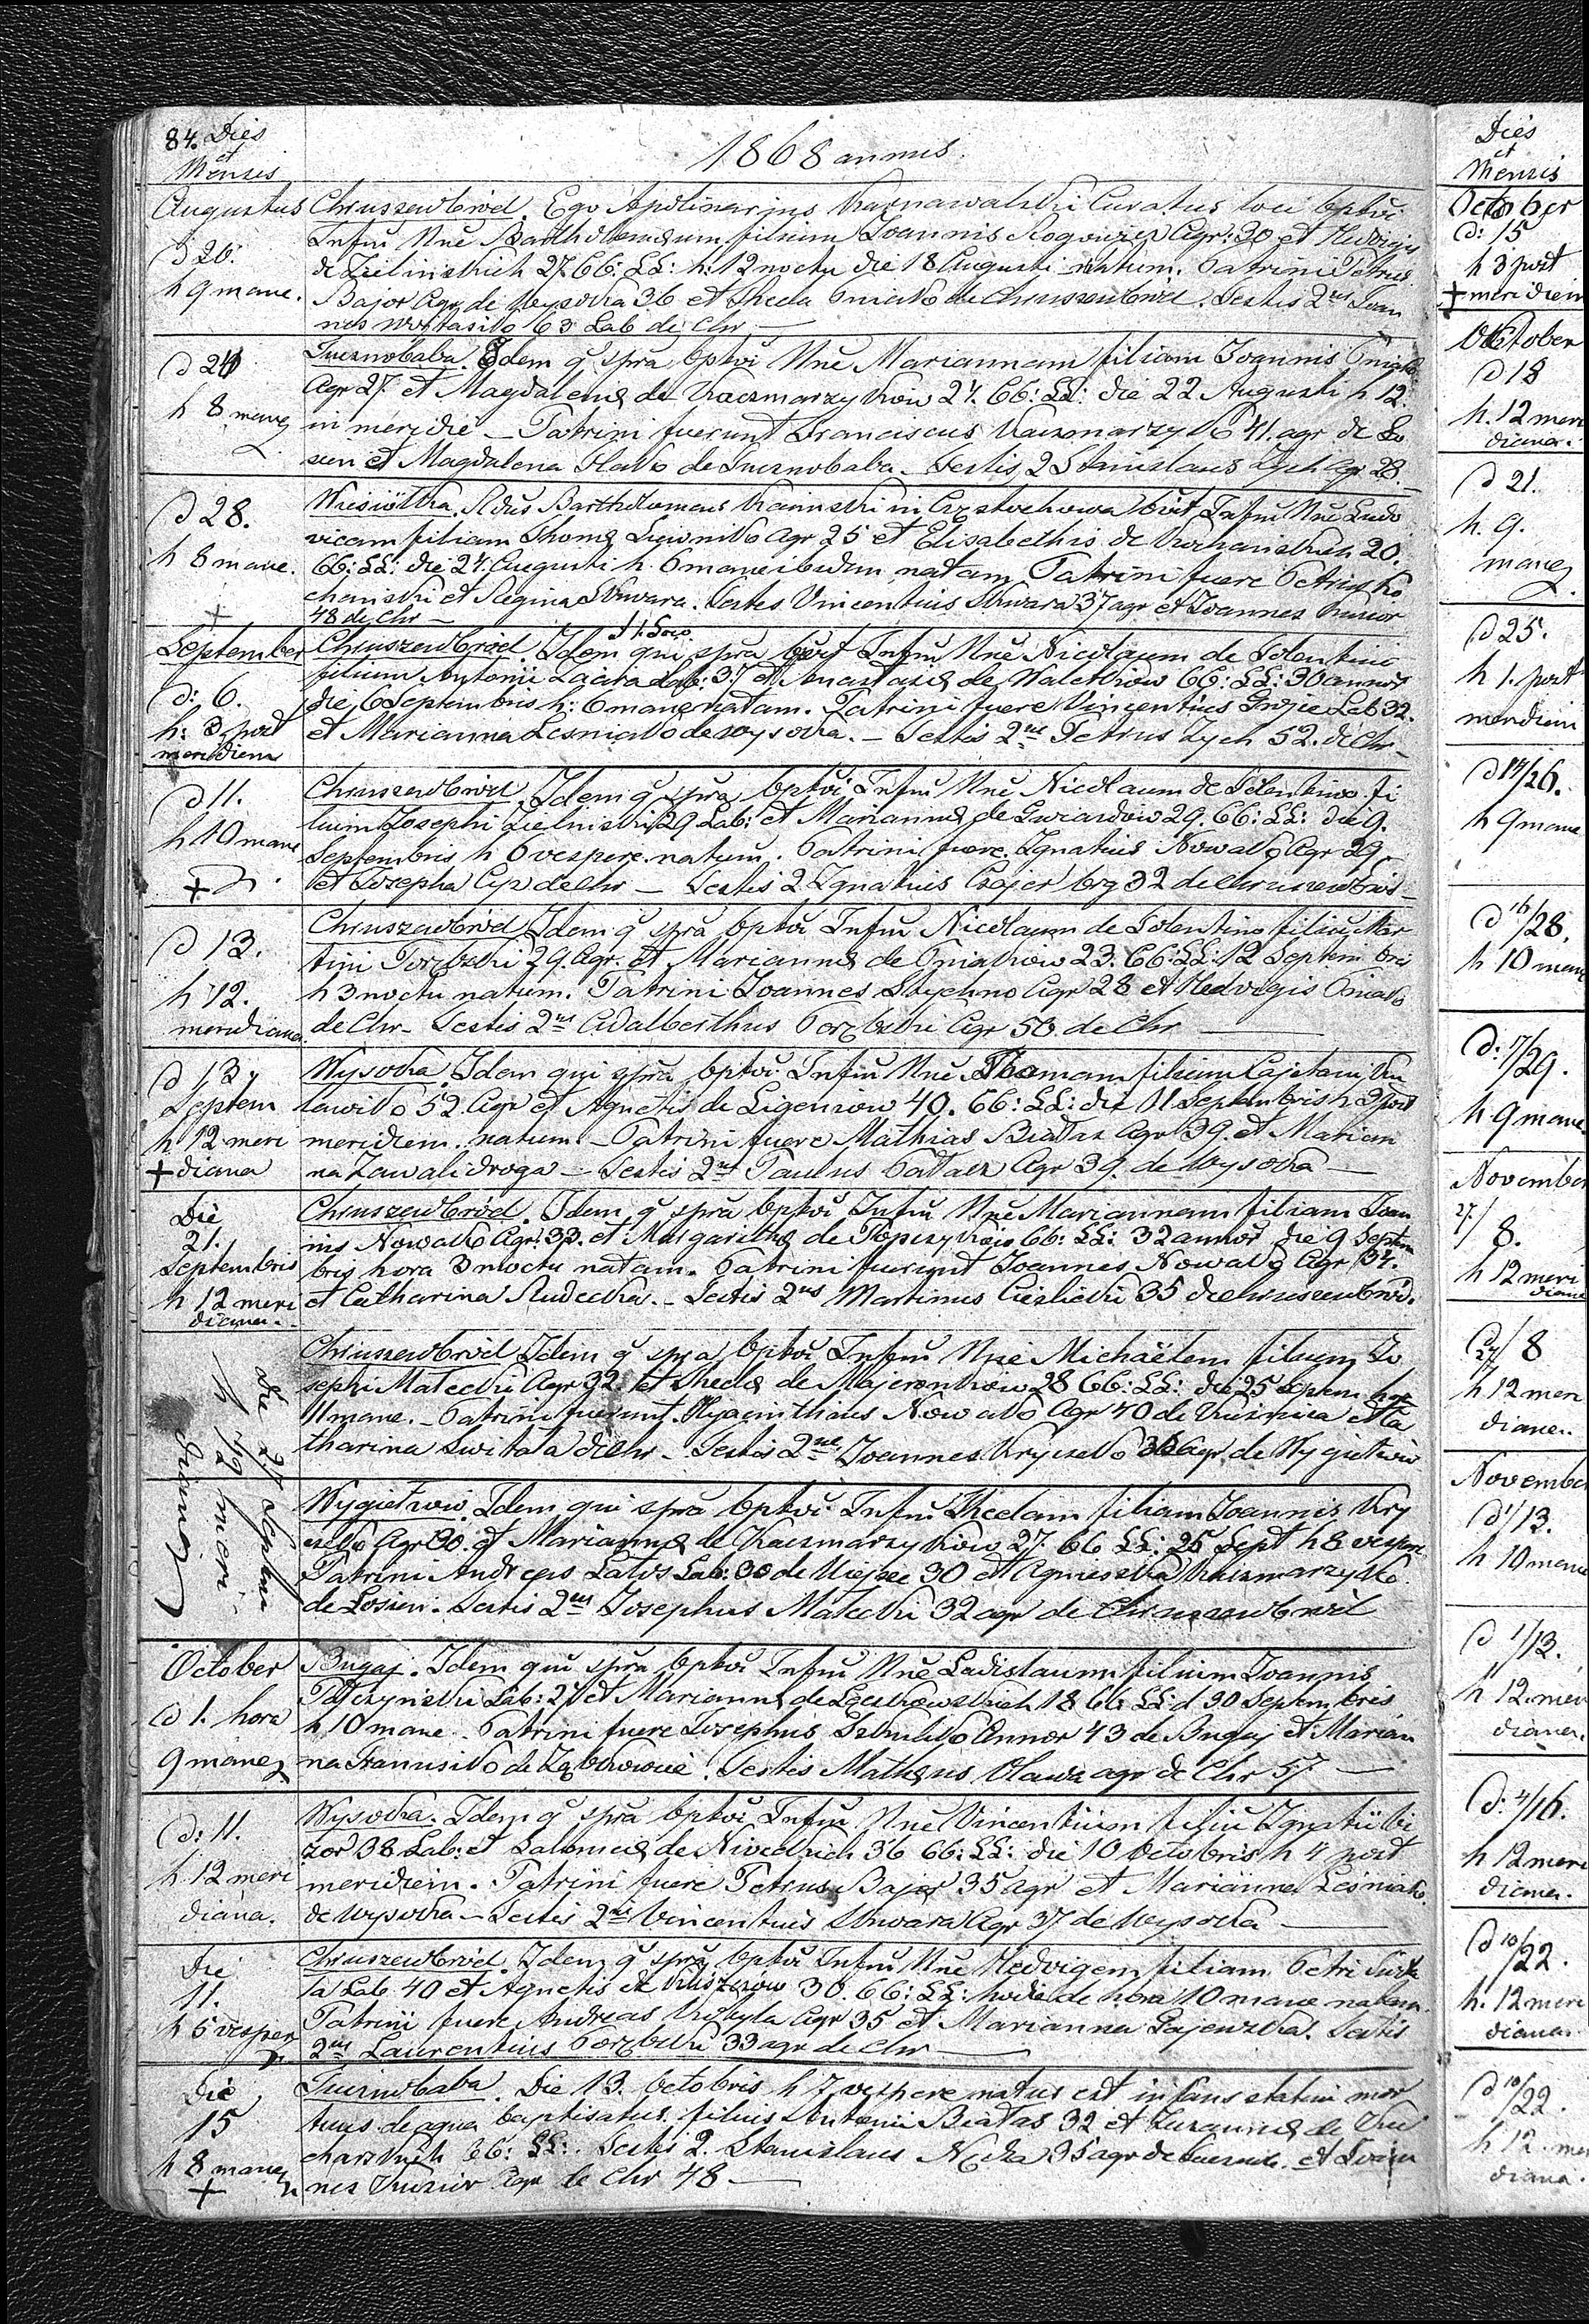 84. Dies
et
Mensis
1868 annus.
Augustus
d 20.
h 9 mane.
Chruszczobród. Ego Apolinarius Karnawalski Curatus loci bptvi
Infm Nne Bartholomeum filium Joannis Rogoza Agr: 30 et Hedvigis
de Zielinskich 27 CC: LL: h: 12 noctu die 18 Augusti natum. Patrini Petrus
Bajor Agr de Wysoka 36 et Thecla Pniak de Chruszczobród. Testis 2us Joan
nes Wojtasik 63 Lab de Chr
d 24
h 8 mane
Tucznobaba. Idem q spra bptvi Nne Mariannam filiam Joannis Pniak
Agr 27. et Magdalenæ de Kaczmarzyków 24. CC: LL: die 22 Augusti h 12.
in meridie – Patrini fuerunt Franciscus Kaczmarzyk 41. agr de Ło
sien et Magdalena Flak de Tucznobaba. Testis 2 Stanislaus Zych Agr 28.
d 28.
h 8 mane.
Wiesiółka. Rdus Bartholomeus Kaminski in Częstochowa bvit Infm Nne Ludo
vicam filiam Thomæ Ligionik Agr 25 et Elisabethis de Kochanskich 20.
CC: LL: die 24. Augusti h. 6 mane ibidem natam. Patrini fuere Petrus Ko
chanski et Regina Skwara. Testes Vincentius Skwara 37 agr et Joannes Kuzior
48 de Chr –
September
d: 6.
h: 3 post
meridiem
Chruszczobród. Idem qui spra bvit Infm Nne Nicolaum de Tolentino
filium Antonii Łaciak Lab: 37 et Anastasiæ de Walotków CC: LL: 30 annor
die 6 Septembris h: 6 mane natam. Patrini fuere Vincentius Gwoźć Lab 32.
et Marianna Lesniak de Wysoka. – Testis 2us Petrus Zych 52. de Chr –
d 11.
h 10 mane
+
Chruszczobród. Idem q spra bptvi Infm Nne Nicolaum de Tolentino fi
lium Josephi Zielinski 29 Lab: et Mariannæ de Gwiazdów 29. CC: LL: die 9.
Septembris h 6 vespere natum. Patrini fuere Ignatius Nowak Agr 29
et Josepha Cyp de Chr – Testis 2 Ignatius Czajer 32 de Chruszczobród –
d 13.
h 12.
meridiana.
Chruszczobród Idem q spra bptvi Infm Nicolaum de Tolentino filiu Mar
tini Porębski 29. Agr. et Mariannæ de Pniaków 23. CC: LL: 12 Septembri
h 3 noctu natum. Patrini Joannes Stychno Agr 28 et Hedvigis Pniak
de Chr – Testis 2us Adalberthus Porębski Agr 50. de Chr
d 13
Septem
h 12 meri
+ diana
Wysoka. Idem qui spra bptvi Infm Nne Thomam filium Cajetani Ku
lawik 52 Agr et Agnetis de Ligenzow 40. CC: LL: die 11 Septembris h 3 post
meridiem. natum – Patrini fuere Mathias Białas Agr 39. et Marian
na Zawalidroga – Testis 2us Paulus Pałasz Agr 39. de Wysoka –
Die
21.
Septembris
h 12 meri
diana.
Chruszczobród. Idem q spra bptvi Infm Nne Mariannam filiam Joan
nis Nowak Agr. 33. et Margarithæ de Kopczyków CC: LL: 32 annor die 9 Septem
bris hora 3 noctu natam. Patrini fuerunt Joannes Nowak Agr 34.
et Catharina Rudecka. – Testis 2us Martinus Cieślicki 35 de Chruszczobród.
die 27 Septem
h 12 meri
diana
Chruszczobród Idem q spra bptvi Infm Nne Michaëlem filium Jo
sephi Małecki Agr 32. et Theclæ de Majcronków 28 CC: LL: die 25 Septem hora
11 mane. – Patrini fuerunt Hyacinthus Nowak Agr 40 de Kuźnica et Ca
tharina Switała de Chr – Testis 2us Joannes Kryczek 36 Agr. de Wygiełzów
Wygiełzów. Idem qui spra bptvi Infm Theclam filiam Joannis Kry
czek Agr 30. et Mariannæ de Kaczmarzyków 27. CC LL: 25 Sept h 8 vespere.
Patrini Andreas Latos Lab: 30 de Niejsce 30 et Agnieszka Kaczmarzyk
de Łosien. Testis 2us Josephus Małecki 32 agr de Chruszczobród
October
d 1. hora
9 mane
Bugaj. Idem qui spra bptvi Infm Nne Ladislaum filium Joannis
Pałczyński Lab: 21 et Mariannæ de Łęckowskich 18 CC LL: d 30 Septembris
h 10 mane. Patrini fuere Josephus annor 43 de Bugaj et Marian
na Hanusik de Ząbkowice. Testis Mathæus Oława agr de Chr 57 –
d: 11.
h 12 meri
diana.
Wysoka. Idem q spra bptvi Infm Nne Vincentium filiu Ignatii Bi
zor 38 Lab: et Salomeæ de Niweckich 36 CC: LL: die 10 Octobris h 4 post
meridiem. Patrini fuere Petrus Bajor 35 agr et Marianna Leśniak
de Wysoka – Testis 2us Vincentius Skwara Agr 37 de Wysoka –
Die
11.
h 5 vesper
Chruszczobród. Idem q spra bptvi Infm Nne Hedvigem filiam Petri Świta
ła Lab. 40 et Agnetis de 30. CC: LL: hodie de hora 10 mane natam.
Patrini fuere Andreas Przybyła Agr 35 et Marianna Gajenzka. Testis
2us Laurentius Porębski 33 agr de Chr
Die
15
h 8 mane
+
Tucznobaba. Die 13. Octobris h 7 vespere natus est infans statim mor
tuus de aqua baptisatus. filius Antoni Białas 32 et Zuzannæ de Ku
charskich 36: LL: Testis 2. Stanislaus Nocka 35 agr de Tucznob. et Joan
nes Kuzior Agr de Chr 48 –
Dies
et
Mensis
October
d: 15
h 3 post
+ meridiem
October
d 18
h. 12 meri
diana.
d 21.
h. 9.
mane
d 25.
h 1. post
meridiem
d 14/26.
h 9 mane
d 16/28.
h 10 mane
d: 17/29.
h 9 mane
November
27/8.
h 12 meri
diana
d 27/8
h 12 meri
diana.
November
d 1/13.
h 10 mane
d 1/13.
h 12. meri
diana.
d: 4/16.
h 12 meri
diana.
d 10/22.
h. 12 meri
diana
d 10/22.
h 12. meri
diana.